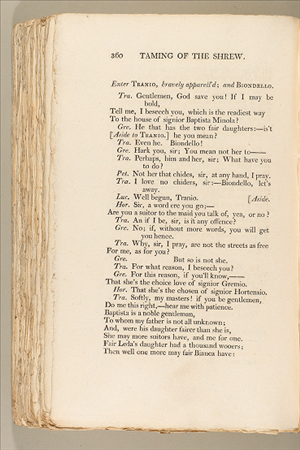 360 TAMING OF THE SHREW.
Enter TRANIO, bravely apparell'd; and BIONDELLO.
Tra. Gentlemen, God save you! If I may be
bold,
Tell me, I beseech you, which is the readiest way
To the house of signior Baptista Minola?
Gre. He that has the two fair daughters:—is't
[Aside to TRANIO.] he you mean?
Tra. Even he. Biondello!
Gre. Hark you, sir; You mean not her to——
Tra. Perhaps, him and her, sir; What have you
to do?
Pet. Not her that chides, sir, at any hand, I pray.
Tra. I love no chiders, sir:—Biondello, let's
away.
Luc. Well begun, Tranio. [Aside.
Hor. Sir, a word ere you go;—
Are you a suitor to the maid you talk of, yea, or no?
Tra. An if I be, sir, is it any offence?
Gre. No; if, without more words, you will get
you hence.
Tra. Why, sir, I pray, are not the streets as free
For me, as for you?
Gre. But so is not she.
Tra. For what reason, I beseech you?
Gre. For this reason, if you'll know,——
That she's the choice love of signior Gremio.
Hor. That she's the chosen of signior Hortensio.
Tra. Softly, my masters! if you be gentlemen,
Do me this right,—hear me with patience.
Baptista is a noble gentleman,
To whom my father is not all unknown;
And, were his daughter fairer than she is,
She may more suitors have, and me for one.
Fair Leda's daughter had a thousand wooers;
Then well one more may fair Bianca have: